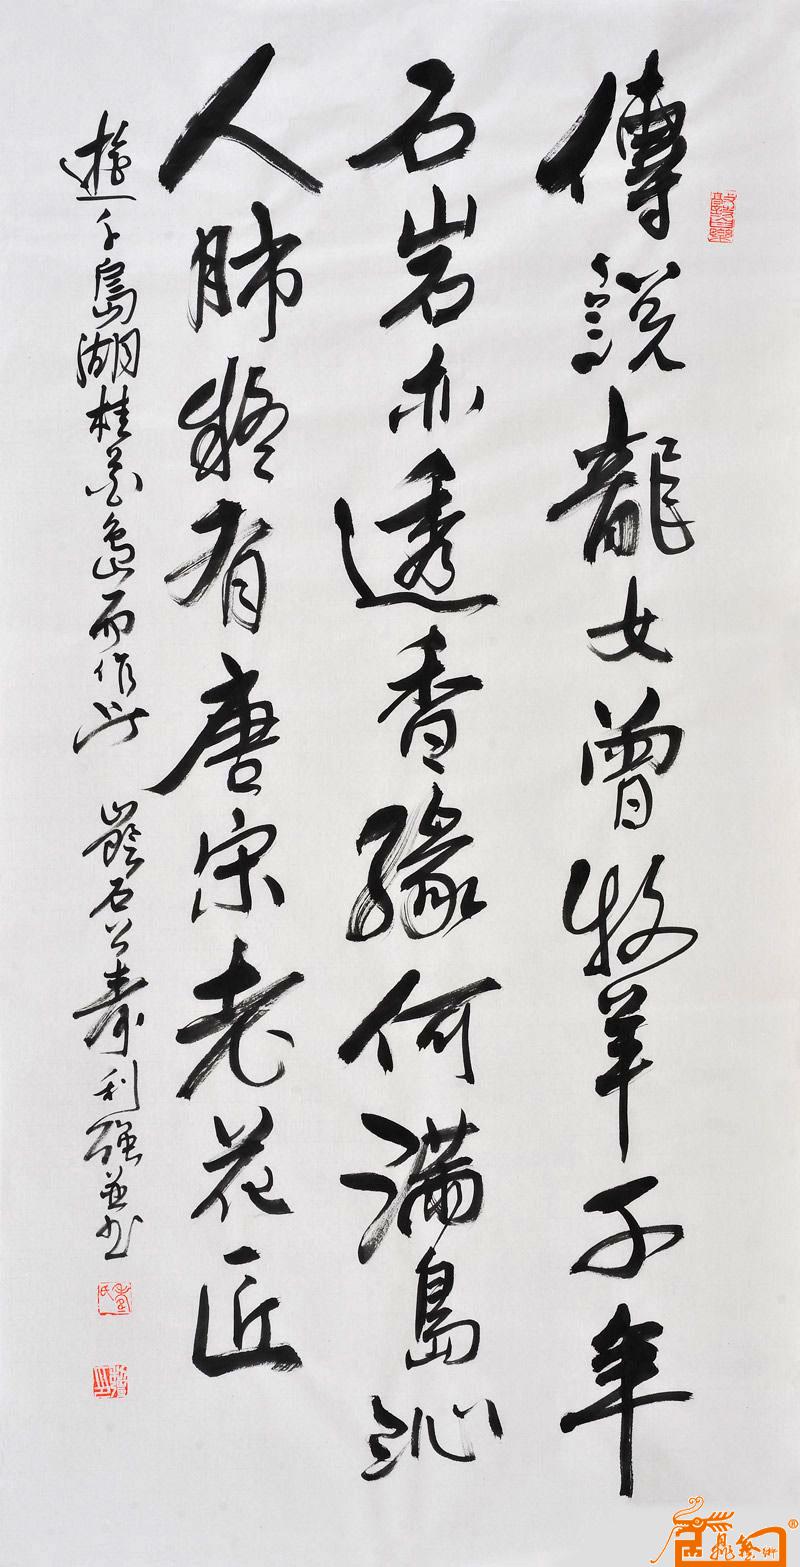 傳說龍女曾牧羊千年
石岩亦透香緣何滿島沁
人肺疑有唐宋老花匠
遊千島湖桂花島而作此 石公壽利強並書